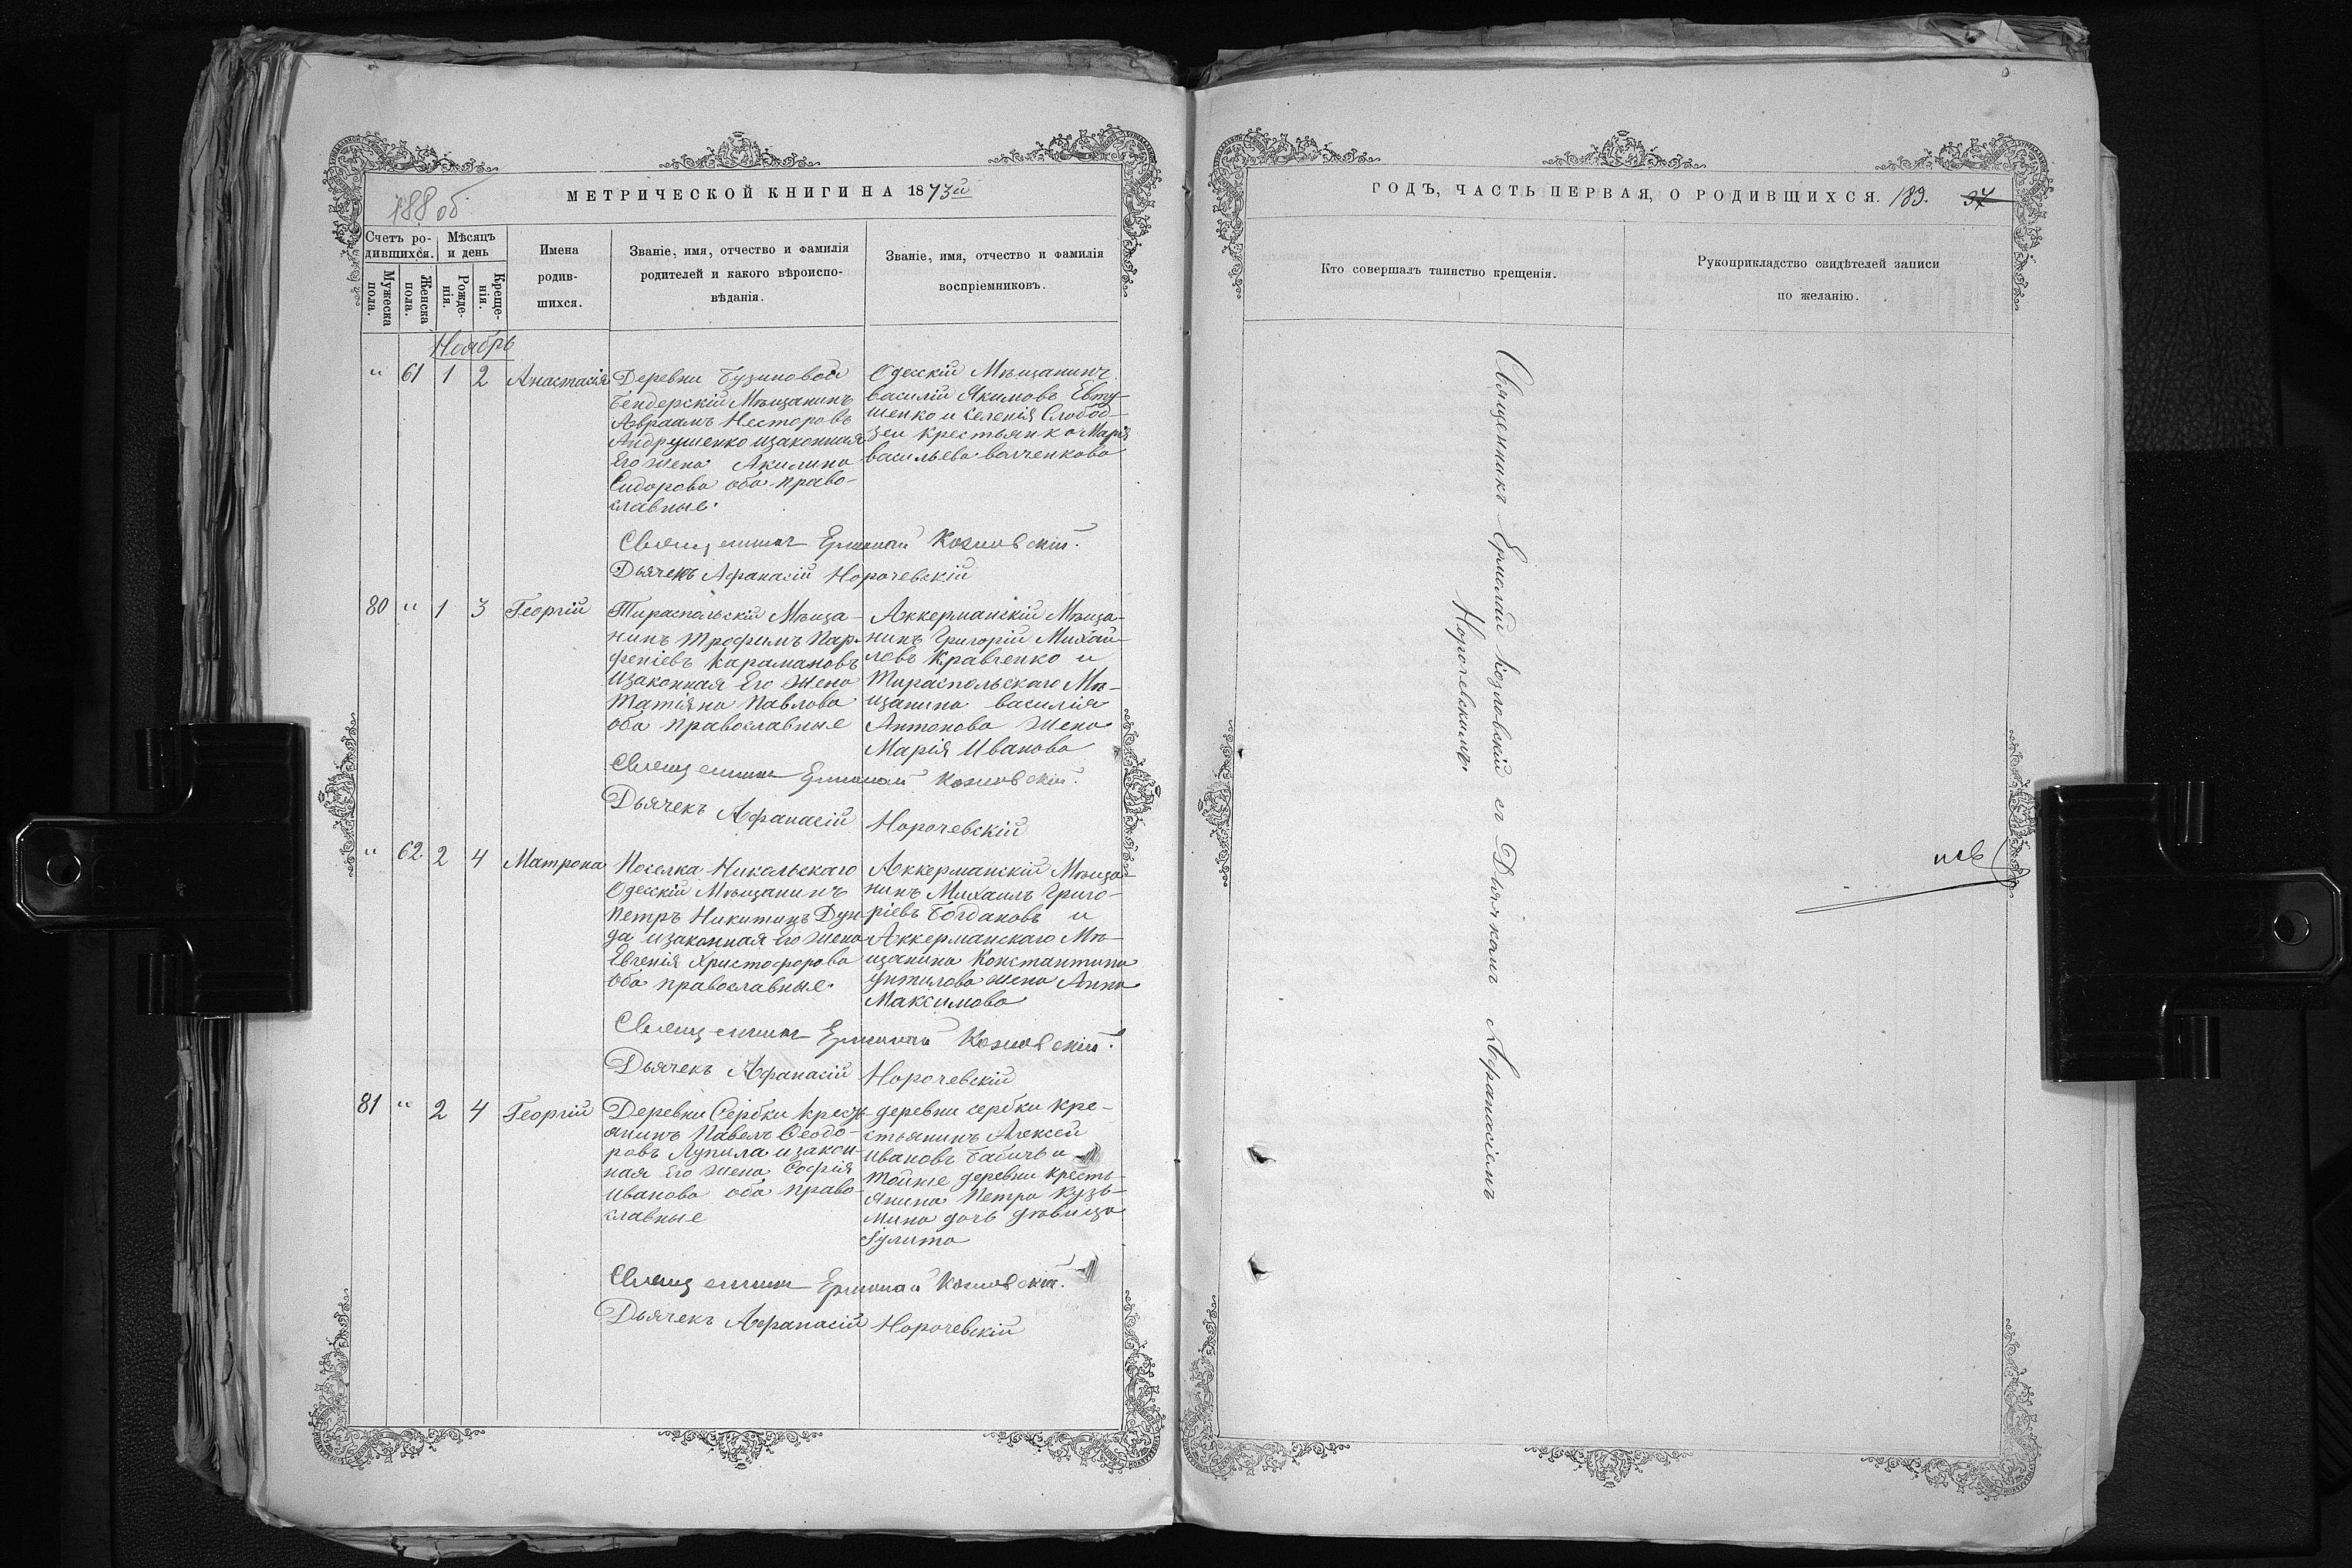 188 об.
МЕТРИЧЕСКОЙ КНИГИ НА 1873й
Счетъ ро-
дившихся.
Мѣсяцъ
и день
Мужеска
пола.
Женска
пола.
Рожде-
нія.
Креще-
нія.
Имена
родив-
шихся.
Званіе, имя, отчество и фамилія
родителей и какого вѣроиспо-
вѣданія.
Званіе, имя, отчество и фамилія
воспріемниковъ.
Ноябрь
" 61 1 2 Анастасія
Деревни Бузиновой
Бендерскій Мѣщанинъ
Авраамъ Несторовъ
Андрушенко изаконная
Его жена Акилина
Сидорова оба право-
славные.
Одесскій Мѣщанинъ
василій Якимовъ Евту-
шенко и Селенія Слобод-
зеи крестьянка Марія
васильева валченкова
Священникъ Ермолай Козловскій.
Дьячекъ Афанасій Норочевскій
80 " 1 3 Георгій
Тираспольскій Мѣща-
нинъ трофимъ Пар-
феніевъ Карамановъ
изаконная Его жена
Татіяна Павлова
оба православные
Аккерманскій Мѣща-
нинъ Григорій Михай-
ловъ Кравченко и
Тираспольскаго Мѣ-
щанина василія
Антонова жена
Марія Иванова
Священникъ Ермолай Козловскій.
Дьячекъ Афанасій Норочевскій
" 62 2 4 Матрона
Поселка Никольскаго
Одесскій Мѣщанинъ
Петръ Никитинъ Дун-
да изаконная его жена
Евгенія Христофорова
оба православные.
Аккерманскій Мѣща-
нинъ Михаилъ Григо-
ріевъ Богдановъ и
Аккерманскаго Мѣ-
щанина Константина
жена Анна
Максимова
Священникъ Ермолай Козловскій.
Дьячекъ Афанасій Норочевскій
81 " 2 4 Георгій
Деревни Сербки крест-
янинъ Павелъ Феодо-
ровъ Лупула изакон-
ная Его жена Софія
Иванова оба право-
славные
деревни сербки кре-
стьянинъ Алексей
Ивановъ Бабичъ и
тойже деревни кресть-
янина Петра Кузь-
мина дочь дѣвица
Іулита
Священникъ Ермолай Козловскій.
Дьячекъ Афанасій Норочевскій
ГОДЪ, ЧАСТЬ ПЕРВАЯ, О РОДИВШИХСЯ. 189.
Кто совершалъ таинство крещенія.
Рукоприкладство свидѣтелей записи
по желанію.
Священникъ Ермолай Козловскій съ Дьячкомъ Афанасіемъ
Норочевскимъ.